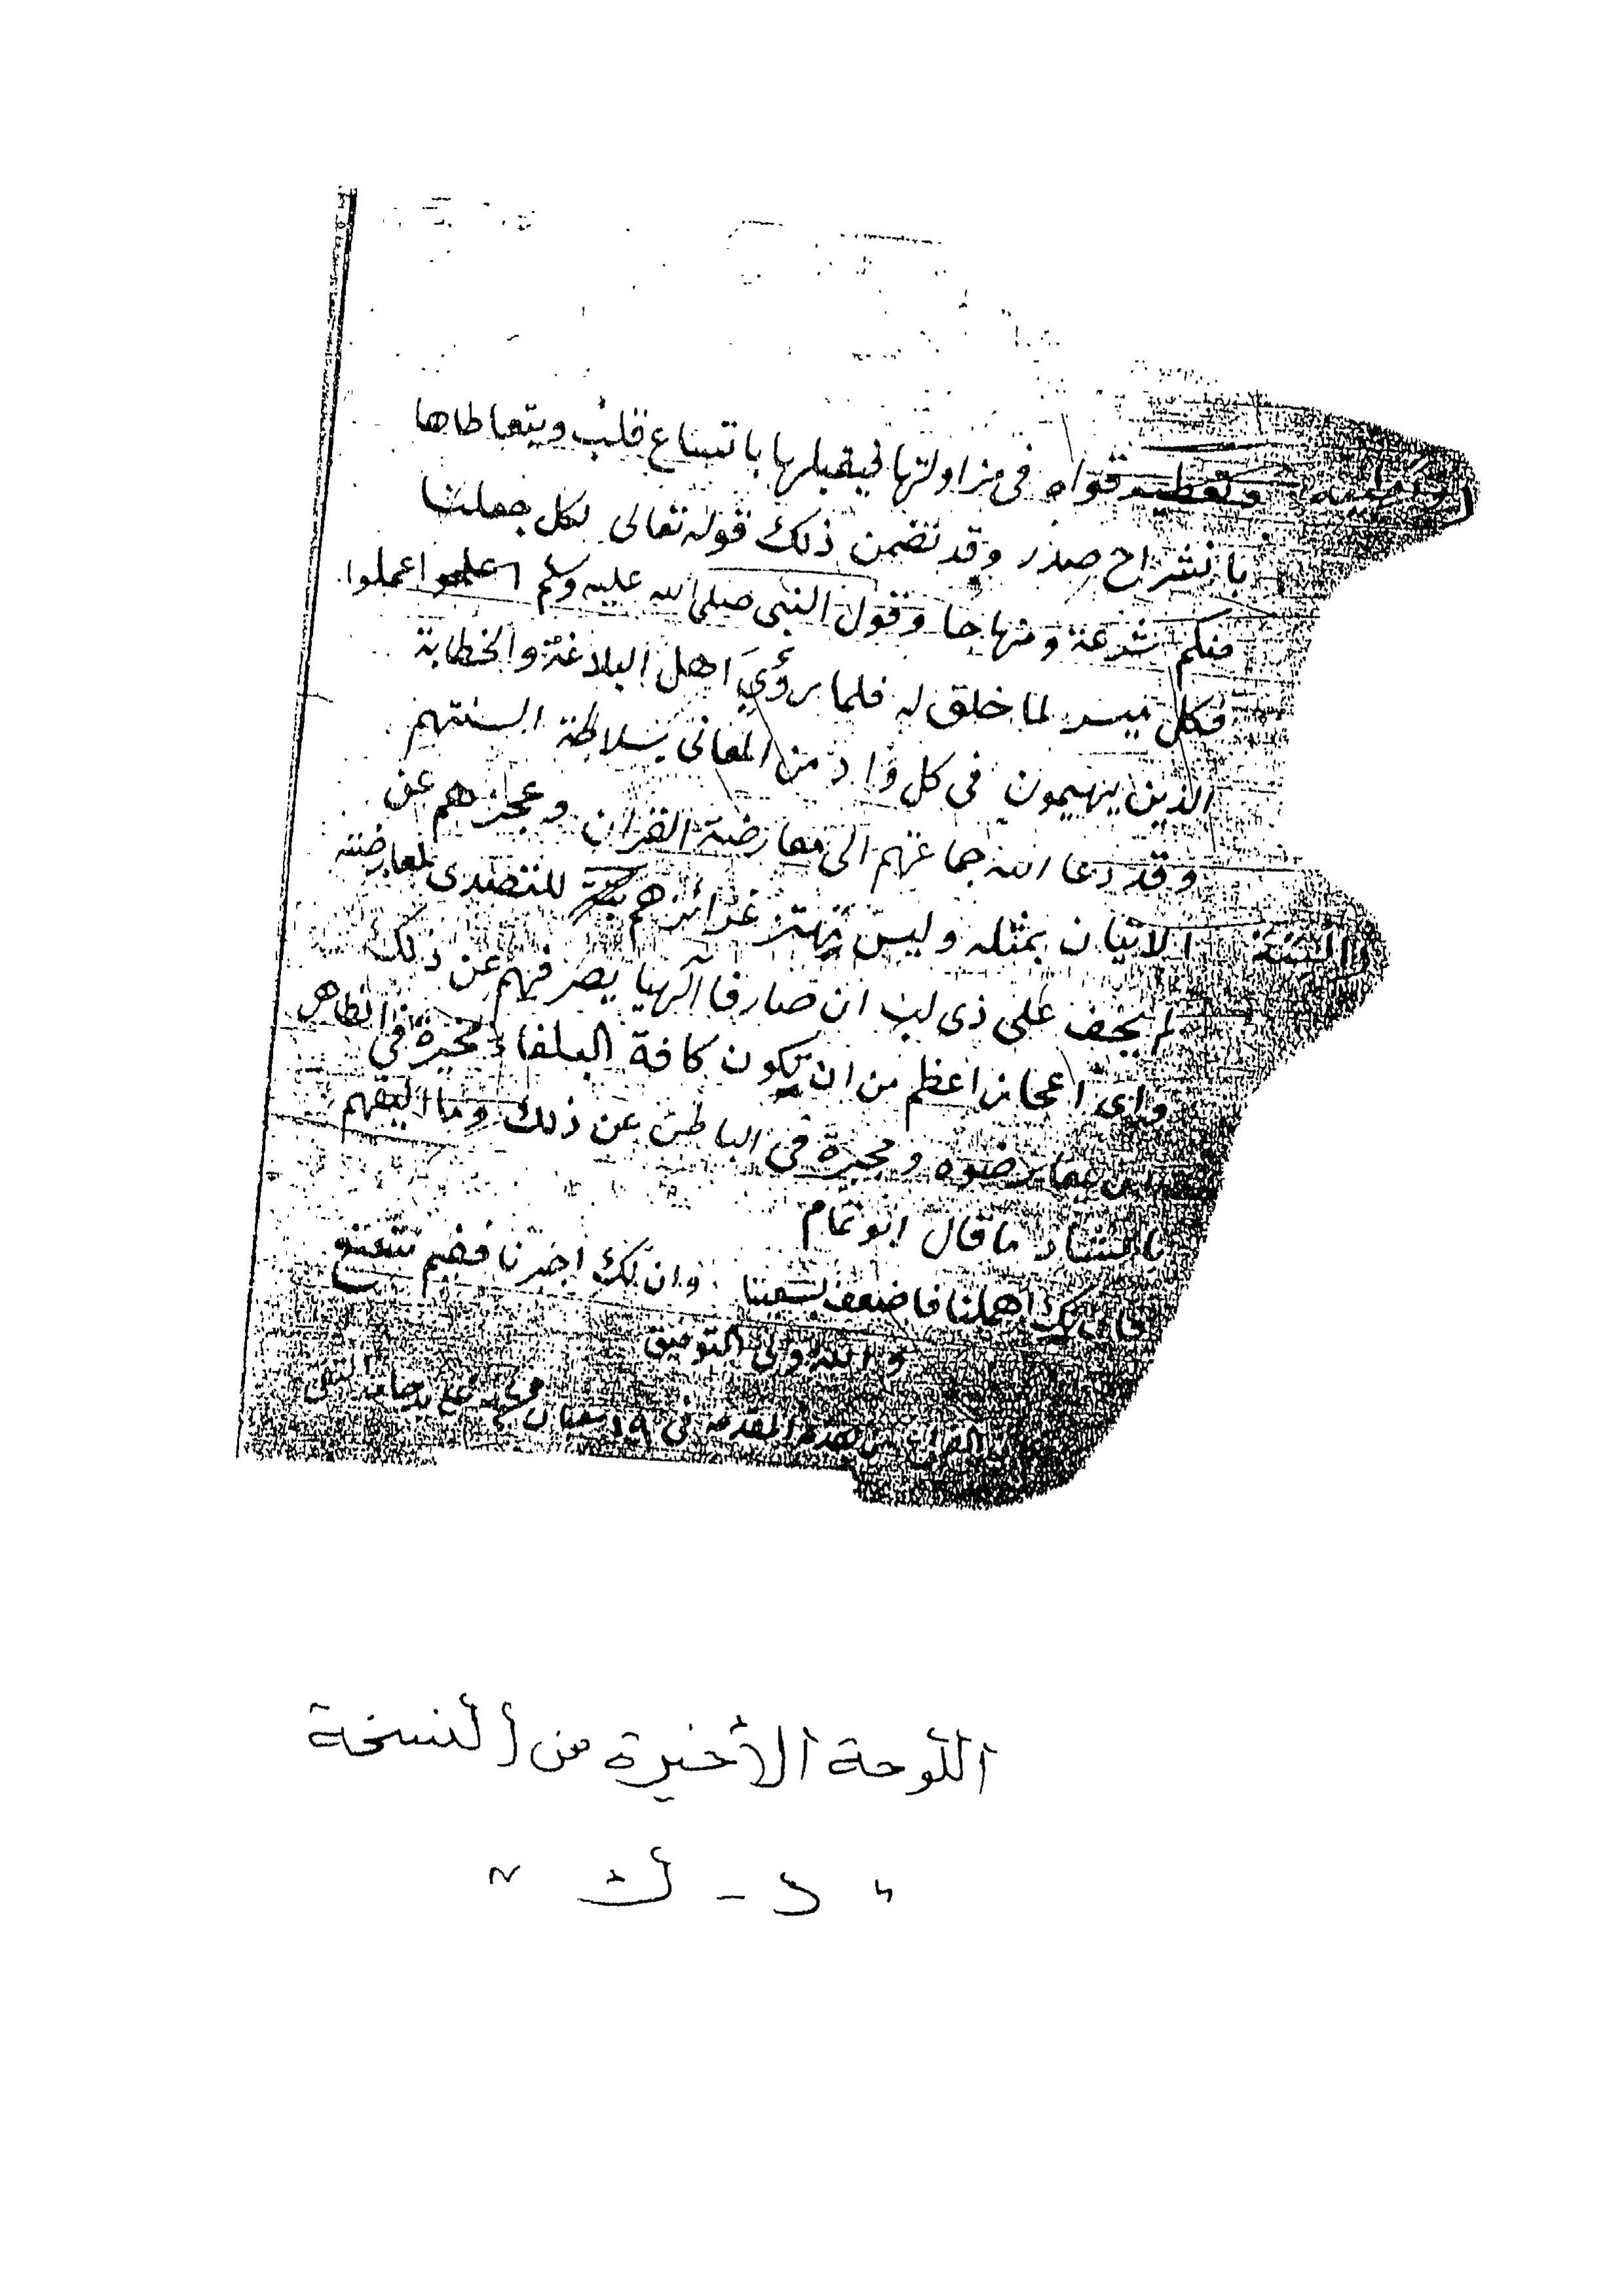 وتعطيه قواه في مزاولتها فيقبلها باتساع قلب ويتعاطاها
بانشراح صدر وقد تضمن ذلك قوله تعالى لكل جعلنا
منكم شرعة ومنهاجا وقول النبي صلى الله عليه وسلم اعملوا
فكل ميسر لما خلق له فلما رؤي اهل البلاغة والخطابة
الذين يهيمون في كل واد من المعاني بسلاطة السنتهم
وقد دعا الله جماعتهم الى معارضة القران وعجزهم عن
الاتيان بمثله وليس تهتز غرائزهم للتصدى لمعارضته
لم يخف على ذى لب ان صارفا آلهيا يصرفهم عن ذلك
واى اعجاز اعظم من ان تكون كافة البلغاء مخيرة في الظاهر
ان يعارضوه ومجبرة في الباطن عن ذلك وما اليقهم
بانشاد ما قال ابو تمام
فان نك اهملنا فاضعف بسعينا وان نك اجبرنا ففيم نتعتع
والله ولى التوفيق
الفراغ من هذه المقدمة في ١٩
اللوحة الأخيرة من النسخة
" د - ك "